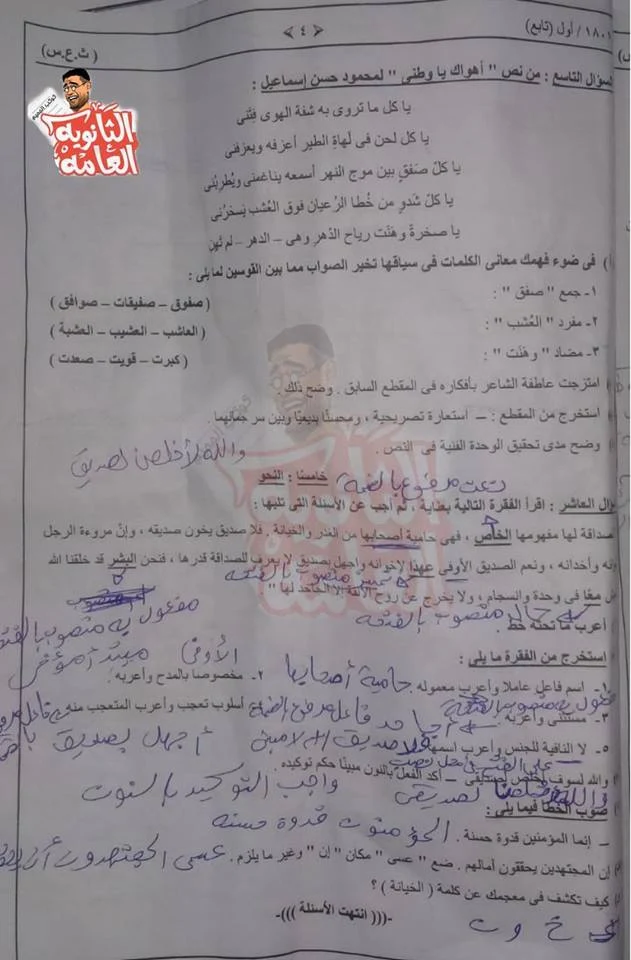 ١٨٠١ / أول (تابع)
﴿ ٤ ﴾
( ث.ع.س )
الثانوية
العامة
السؤال التاسع : من نص " أهواك يا وطنى " لمحمود حسن إسماعيل :
يا كل ما تروى به شفة الهوى فتنى
يا كل لحن فى لهاة الطير أعزفه ويعزفنى
يا كل صفق بين موج النهر أسمعه يناغمنى ويطربنى
يا كل شدو من خطا الرعيان فوق العشب يسحرنى
يا صخرة وهنت رياح الدهر وهى – الدهر – لم تهن
) فى ضوء فهمك معانى الكلمات فى سياقها تخير الصواب مما بين القوسين لما يلى :
١- جمع " صفق " :
( صفوق – صفيقات – صوافق )
٢- مفرد " العشب " :
( العاشب – العشيب – العشبة )
٣- مضاد " وهنت " :
( كبرت – قويت – صعدت )
) امتزجت عاطفة الشاعر بأفكاره فى المقطع السابق . وضح ذلك
) استخرج من المقطع : – استعارة تصريحية ، ومحسنا بديعيا وبين سر جمالهما
) وضح مدى تحقيق الوحدة الفنية فى النص .
والله لأخلصن لصديق
خامسا : النحو
نعت مرفوع بالضمة
ؤال العاشر : اقرأ الفقرة التالية بعناية ، ثم أجب عن الأسئلة التى تليها :
صداقة لها مفهومها الخاص ، فهى حامية أصحابها من الغدر والخيانة . فلا صديق يخون صديقه ، وإن مروءة الرجل
وأخدانه ، ونعم الصديق الأوفى عهدا لإخوانه وأجهل بصديق لا يعرف للصداقة قدرها ، فنحن البشر قد خلقنا الله
تمييز منصوب بالفتحة
معا فى وحدة وانسجام ، ولا يخرج عن روح الألفة إلا الجاحد لها "
مفعول به منصوب بالفتحة
حال منصوب بالفتحة
أعرب ما تحته خط .
استخرج من الفقرة ما يلى :
الأوفى مبتدأ مؤخر
١- اسم فاعل عاملا وأعرب معموله .
حامية أصحابها
٢- مخصوصا بالمدح وأعربه .
مفعول به منصوب بالفتحة
٣- مستثنى وأعربه .
فاعل مرفوع بالضمة
أسلوب تعجب وأعرب المتعجب منه
٥- لا النافية للجنس وأعرب اسمها
أجهل بصديق
والله لسوف أخلص لصديقى – أكد الفعل بالنون مبينا حكم توكيده .
لصديقى واجب التوكيد بالنون
صوب الخطأ فيما يلى :
– إنما المؤمنين قدوة حسنة .
المؤمنون قدوة حسنه
إن المجتهدين يحققون آمالهم . ضع " عسى " مكان " إن " وغير ما يلزم .
عسى المجتهدون أن
كيف تكشف فى معجمك عن كلمة ( الخيانة ) ؟
خ و ن
-((( انتهت الأسئلة )))-